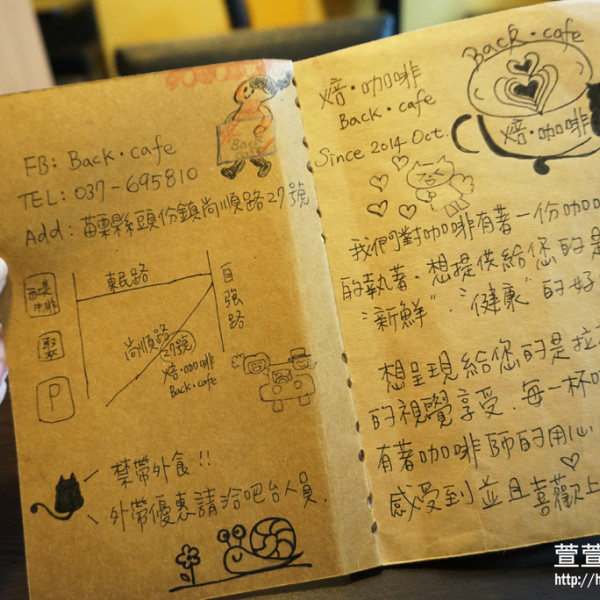 FB: Back·cafe
TEL: 037-695810
Add: 苗栗縣頭份鎮尚順路27號
東民路
自強路
尚順路
27號
焙·咖啡
Back·cafe
P
禁帶外食!!
外帶優惠請洽吧台人員.
Back
Back·cafe
焙·咖啡
焙·咖啡
Back·cafe
Since 2014 Oct.
我們對咖啡有著一份咖
的執著.想提供給您的是
"新鮮"."健康"的好
想呈現給您的是拉
的視覺享受.每一杯
有著咖啡師的用心
感受到並且喜歡上
萱萱
http://h